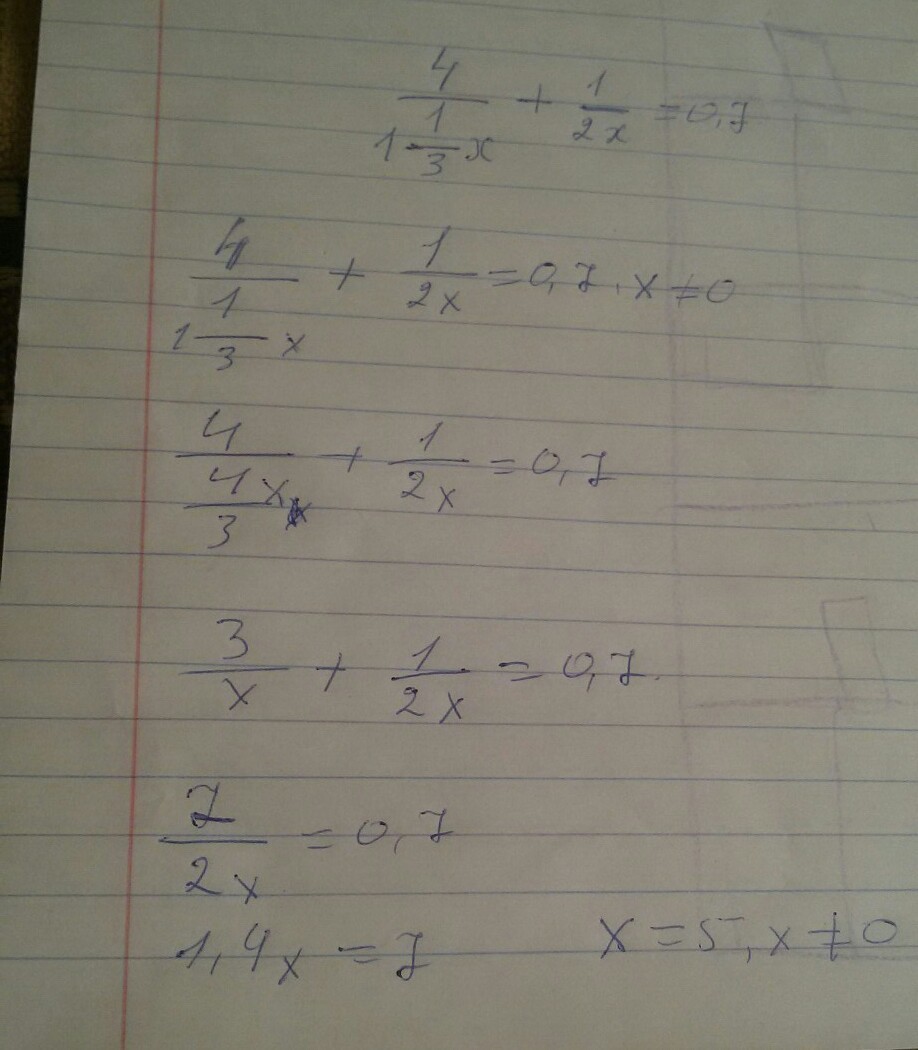 4/(1 1/3 x) + 1/(2x) = 0,7
4/(1 1/3 x) + 1/(2x) = 0,7, x ≠ 0
4/(4/3 x) + 1/(2x) = 0,7
3/x + 1/(2x) = 0,7.
7/(2x) = 0,7
1,4x = 7 x = 5, x ≠ 0